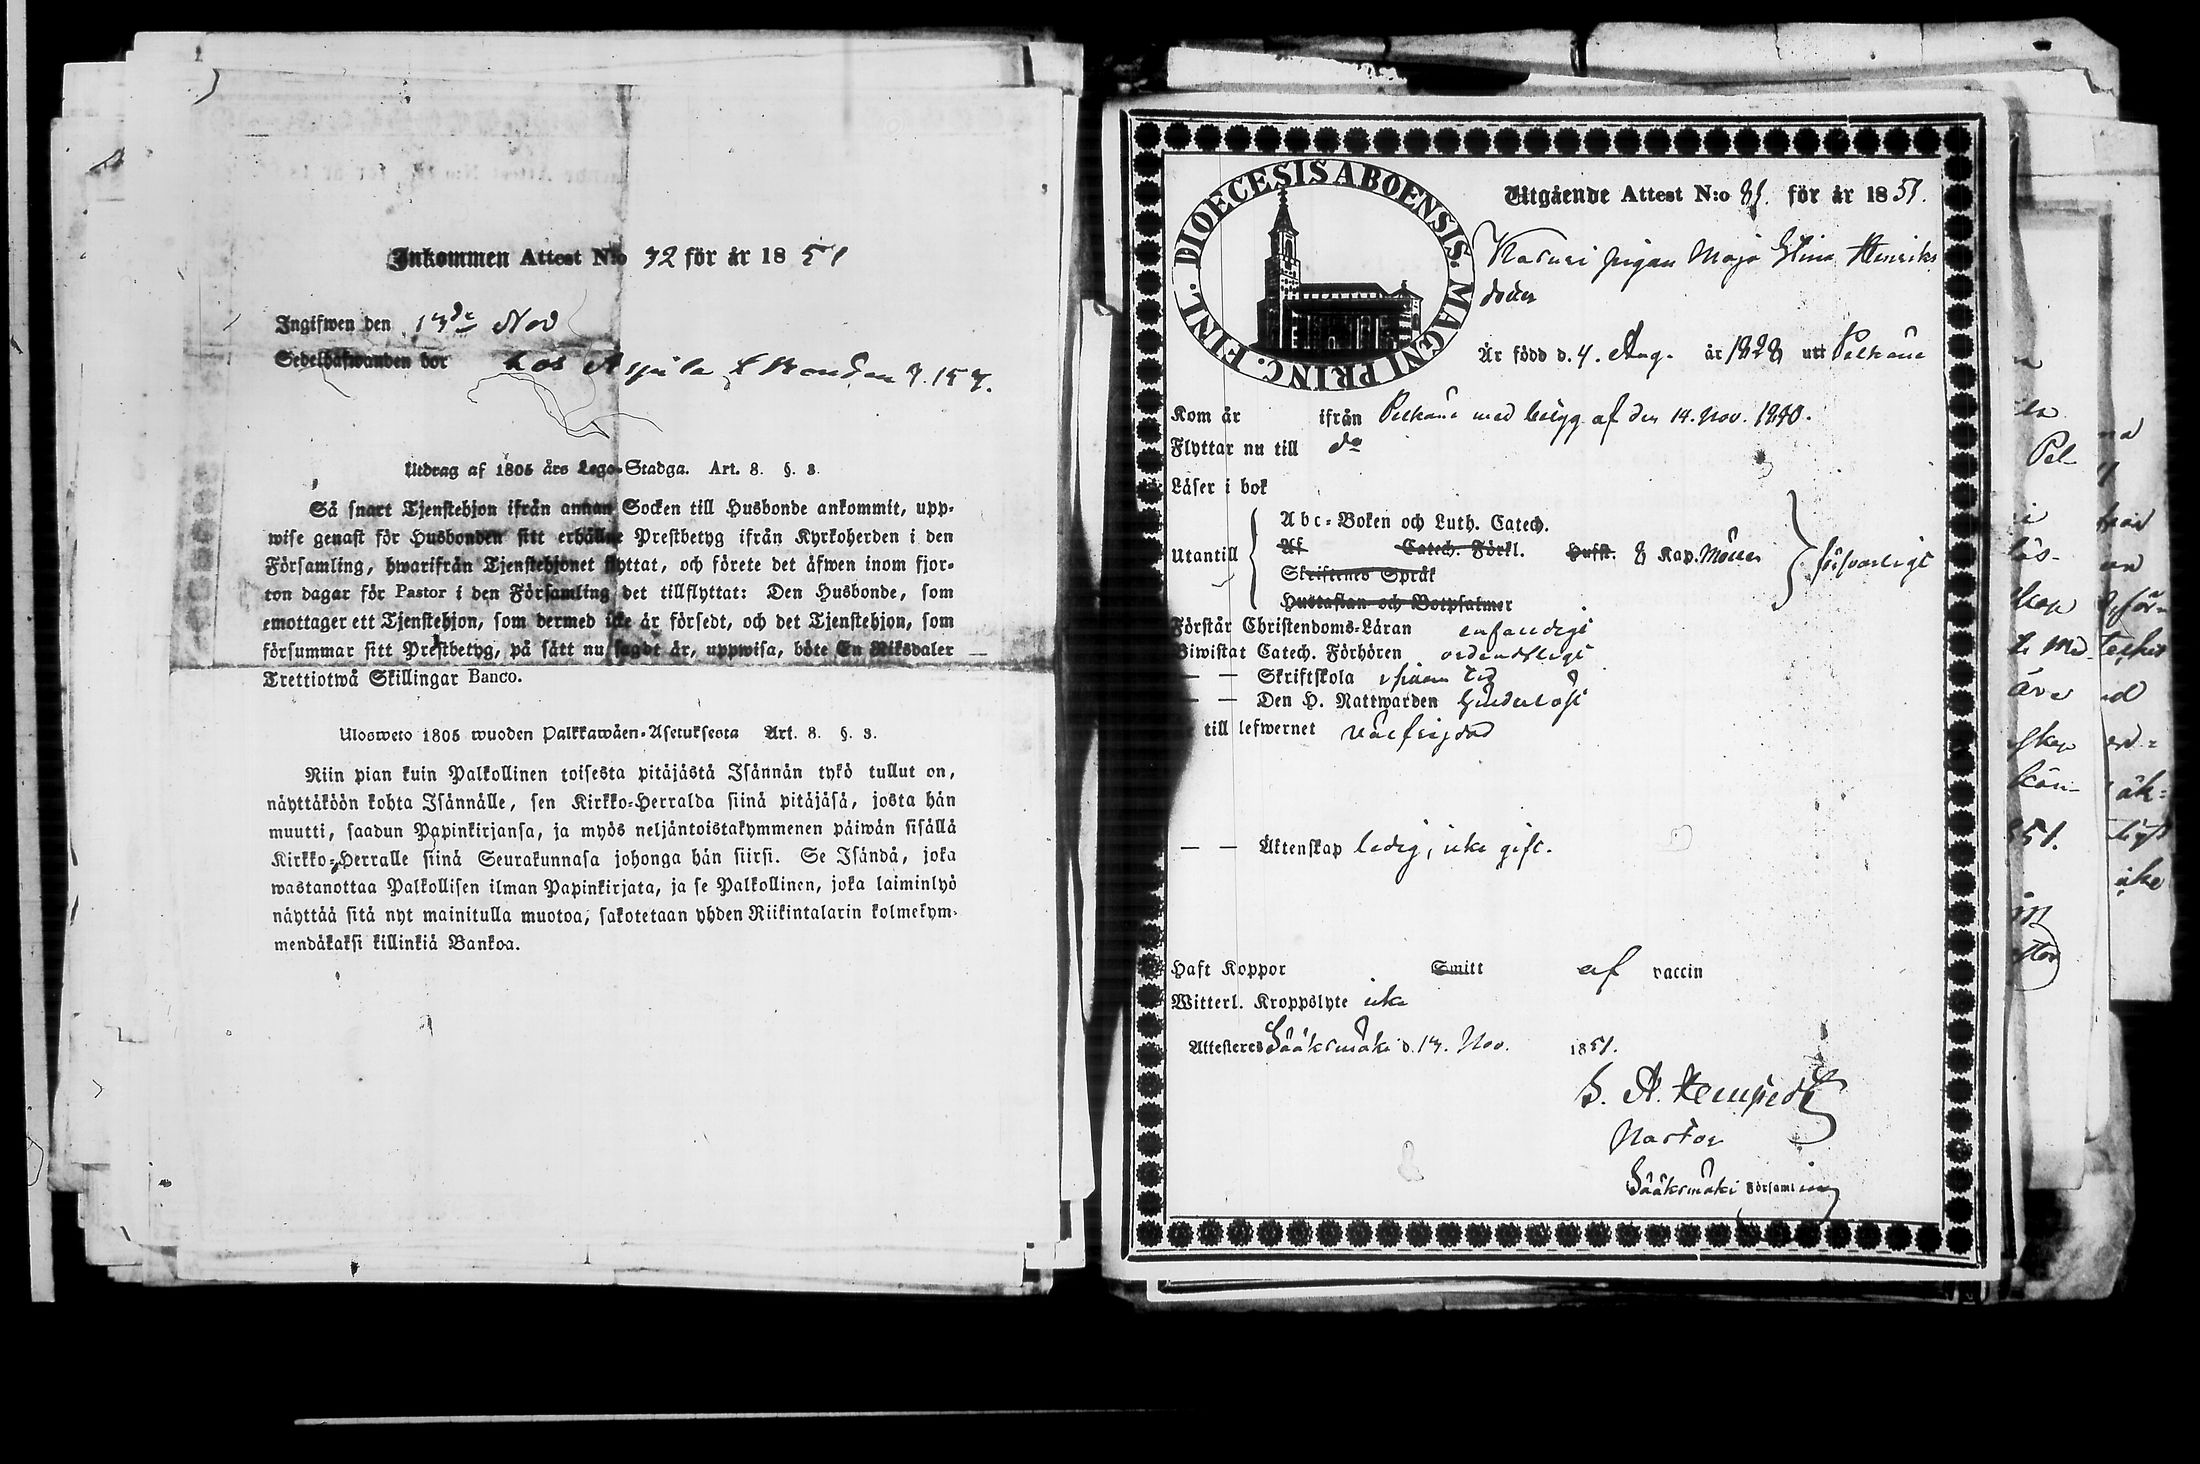 Inkommen Attest N:o 32 för år 1851
Ingifwen den 13de Nov
Sedelhafwanden bor hos
Utdrag af 1805 års Lego-Stadga. Art. 8. §. 3.
Så snart Tjenstehjon ifrån annan Socken till Husbonde ankommit, upp-
wise genast för Husbonden sitt erhållne Prestbetyg ifrån Kyrkoherden i den
Församling, hwarifrån Tjenstehjonet flyttat, och förete det äfwen inom fjor-
ton dagar för Pastor i den Församling det tillflyttat: Den Husbonde, som
emottager ett Tjenstehjon, som dermed icke är försedt, och det Tjenstehjon, som
försummar sitt Prestbetyg, på sätt nu sagdt är, uppwisa, böte En Riksdaler
Trettiotwå Skillingar Banco.
Ulosweto 1805 wuoden Palkkawäen-Asetuksesta Art. 8. §. 3.
Niin pian kuin Palkollinen toisesta pitäjästä Isännän tykö tullut on,
näyttäköön kohta Isännälle, sen Kirkko-Herralda siinä pitäjäsä, josta hän
muutti, saadun Papinkirjansa, ja myös neljäntoistakymmenen päiwän sisällä
Kirkko-Herralle siinä Seurakunnasa johonga hän siirsi. Se Isändä, joka
wastanottaa Palkollisen ilman Papinkirjata, ja se Palkollinen, joka laiminlyö
näyttää sitä nyt mainitulla muotoa, sakotetaan yhden Riikintalarin kolmekym-
mendäkaksi killinkiä Bankoa.
DIOECESIS ABOENSIS. MAGNI PRINC. FINL.
Utgående Attest N:o 81. för år 1851.
pigan Maja Stina Henriks
doter
Är född d. 4. Aug. år 1828 utt Pelkäne
Kom år ifrån Pelkäne med betyg af den 14. Nov. 1840.
Flyttar nu till do
Läser i bok
Utantill
Abc-Boken och Luth. Catech.
Af Catech. Förkl. Husst. 8 Kap. Möller försvarligt
Skriftenes Språk
Hustaflan och Botpsalmer
Förstår Christendoms-Läran enfaldigt
Biwistat Catech. Förhören ordentligt
— — Skriftskola i sinom tid
— — Den H. Nattwarden hinderlöst
till lefwernet välfrejdad
— — Äktenskap ledig, icke gift.
Haft Koppor Smitt af vaccin
Witterl. Kroppslyte icke
Attesteres Sääksmäki d. 13. Nov. 1851.
Pastor
Sääksmäki Församling